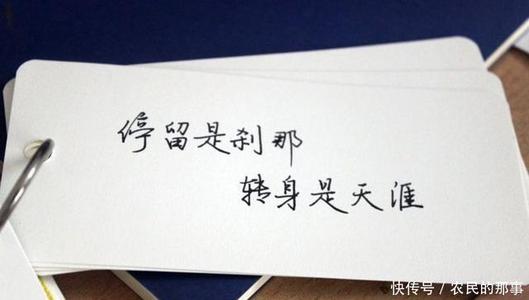 停留是刹那
转身是天涯
快传号/农民的那事